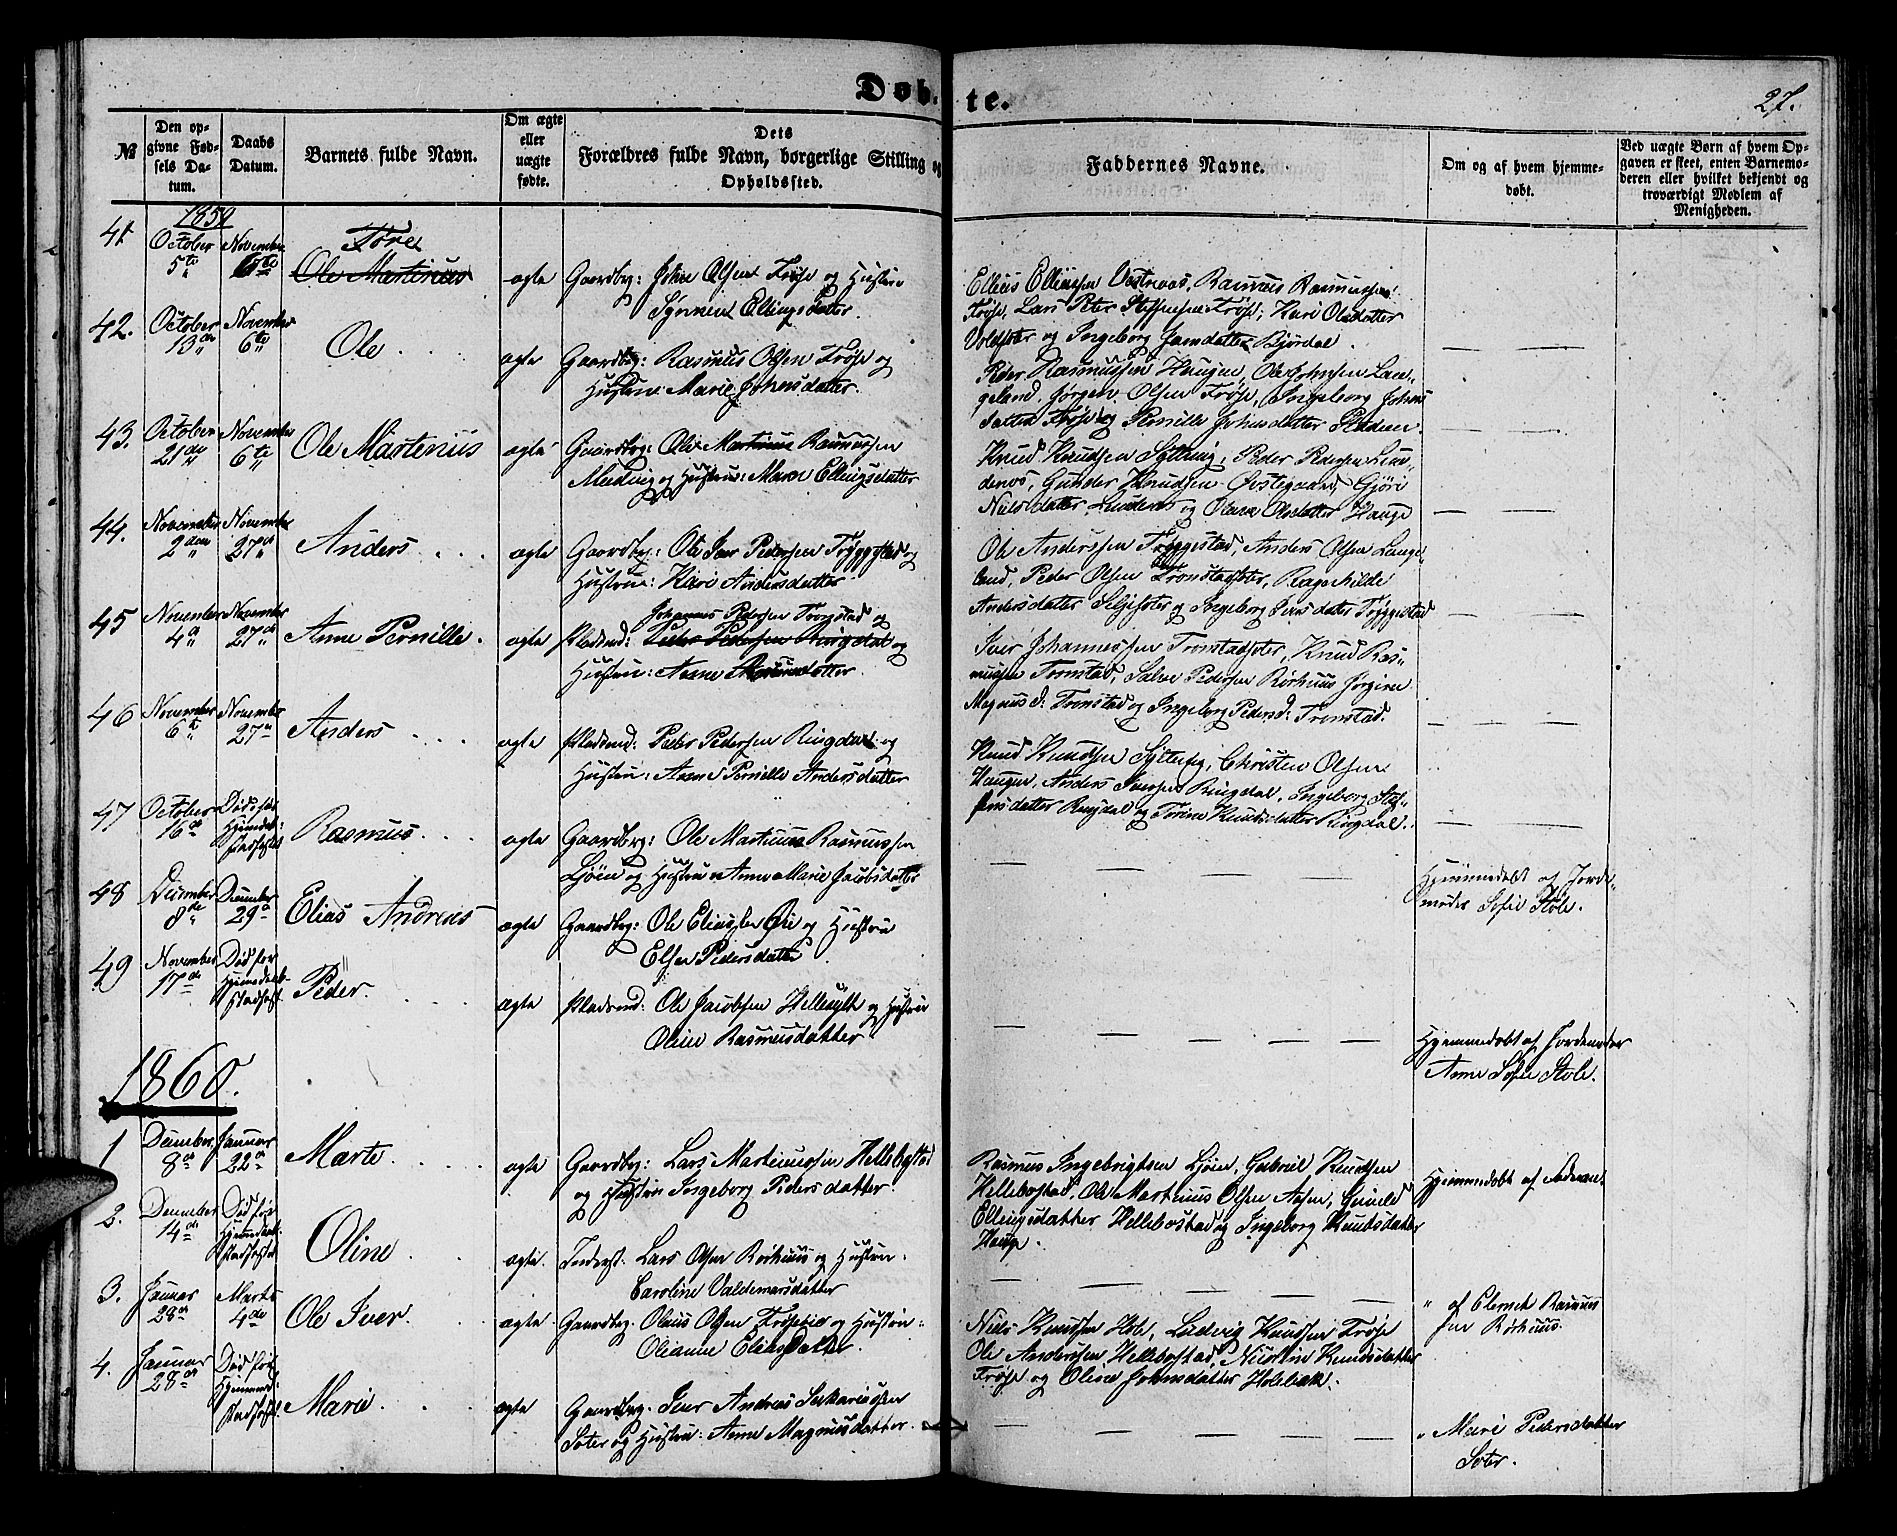 Døbte.
27.
№
Den opgivne Fødsels Datum.
Daabs Datum.
Barnets fulde Navn.
Om ægte eller uægte fødte.
Dets Forældres fulde Navn, borgerlige Stilling og Opholdssted.
Faddernes Navne.
Om og af hvem hjemmedøbt.
Ved uægte Børn af hvem Opgaven er skeet, enten Barnemoderen eller hvilket bekjendt og troværdigt Medlem af Menigheden.
1859
41 October 5te November 6te Tore
Ole Martinus
ægte Gaardbr: John Olsen Frøse og Hustrue
Elling Ellingsen Vestreaas, Rasmus Rasmussen
Frøse, Lars Peter Steffensen Frøse, Kari Olsdatter
og Ingeborg Jansdatter Bjørdal.
42. October 13de November 6te Ole
ægte Gaardbr: Rasmus Olsen Frøse og
Hustrue Marie Johnsdatter.
Peder Rasmussen Haugen, Ole Johnsen Lan-
geland, Jørgen Olsen Frøse, Ingeborg Johns
datter Frøse og Pernille Johnsdatter
43. October 21de November 6te Ole Martenius
ægte Gaardbr: Ole Martinus Rasmussen
og Hustrue: Maren Ellingsdatter
Knud Knudsen Sylteng, Peder Pedersen Lun-
denes, Gunder Knudsen Østegaard, Gjøri
Nielsdatter, Lundenes og Olava Olsdatter Hauge
44. November 2den November 27de Anders
ægte Gaardbr: Ole Iver Pedersen Tryggestad og
Hustrue: Kari Andersdatter
Ole Anderssen Tryggestad, Anders Olsen Lange-
land, Peder Olsen Tronstadsæter, Ragnhilde
Andersdatter og Ingeborg Iversdatter Tryggestad
45 November 4de November 27de Anne Pernille.
Johannes Pedersen Tronstad og
ægte Pladsmd: Peder Pedersen Ringdal og
Hustrue: Anne Rasmusdatter.
Iver Johannessen Tronstadsæter, Knud Ras-
mussen Tronstad, Salve Pedersen Rørhuus Jørgine
Magnus d: Tronstad og Ingeborg Peders d: Tronstad.
46 November 6te November 27de Anders
ægte Pladsmd: Peder Pedersen Ringdal og
Hustrue: Anne Pernille Andersdatter
Knud Knudsen Sylteng, Christen Olsen
Haugen, Anders Iversen Ringdal, Ingeborg Stef-
fensdatter Ringdal og Knudsdatter Ringdal.
47 October 16de Død før Hjemmed: Stadfæstet Rasmus
ægte Gaardbr: Ole Martinus Rasmussen
Ljøen og Hustrue Anne Marie Jacobsdatter
Hjemmedøbt af Jorde-
moder Sofie Stole.
48 December 8de December 29de Elias Andreas
ægte Gaardbr: Ole Eliassen Øie og Hustrue
Elsen Pedersdatter
49 November 17de Død før Hjemmedaab- Stadfæst. Peder.
ægte Pladsmd: Ole Jacobsen Hellesylt og Hustrue
Oline Rasmusdatter
Hjemmedøbt af Jordemoder
Anne Sofie Stole.
1860.
1 December 8de Januar 22de Marte
ægte Gaardbr: Lars Martinussen Hellebostad
og Hustrue Ingeborg Pedersdatter.
Rasmus Ingebrigtsen Ljøen, Gabriel Knudsen
Hellebostad, Ole Martinus Olsen Aasen,
Ellingsdatter Hellebostad og Ingeborg Knudsdatter
Hauge.
Hjemmedøbt af Faderen.
2. December 14de Død før Hjemmedaab Stadfæstet Oline
ægte. Inderst. Lars Olsen Rørhuus og Hustrue.
Caroline Valdemarsdatter
" af Clemet Rasmus
sen Rørhuus.
3. Januar 28de Marts 4de Ole Iver.
ægte. Gaardbr. Olaus Olsen og Hustrue:
Olianne Eliasdatter.
Niels Knudsen Hole, Ludvig Knudsen Frøse
Ole Anderssen Hellebostad, Knudsdatter
Frøse og Oline Johnsdatter Holebæk.
4. Januar 28de Død før Hjemmed: Stadfæst Marie
ægte Gaardbr. Iver Andreas Sakariassen
Sæter og Hustrue: Anne Magnusdatter.
" Mari Pedersdatter
Sæter.